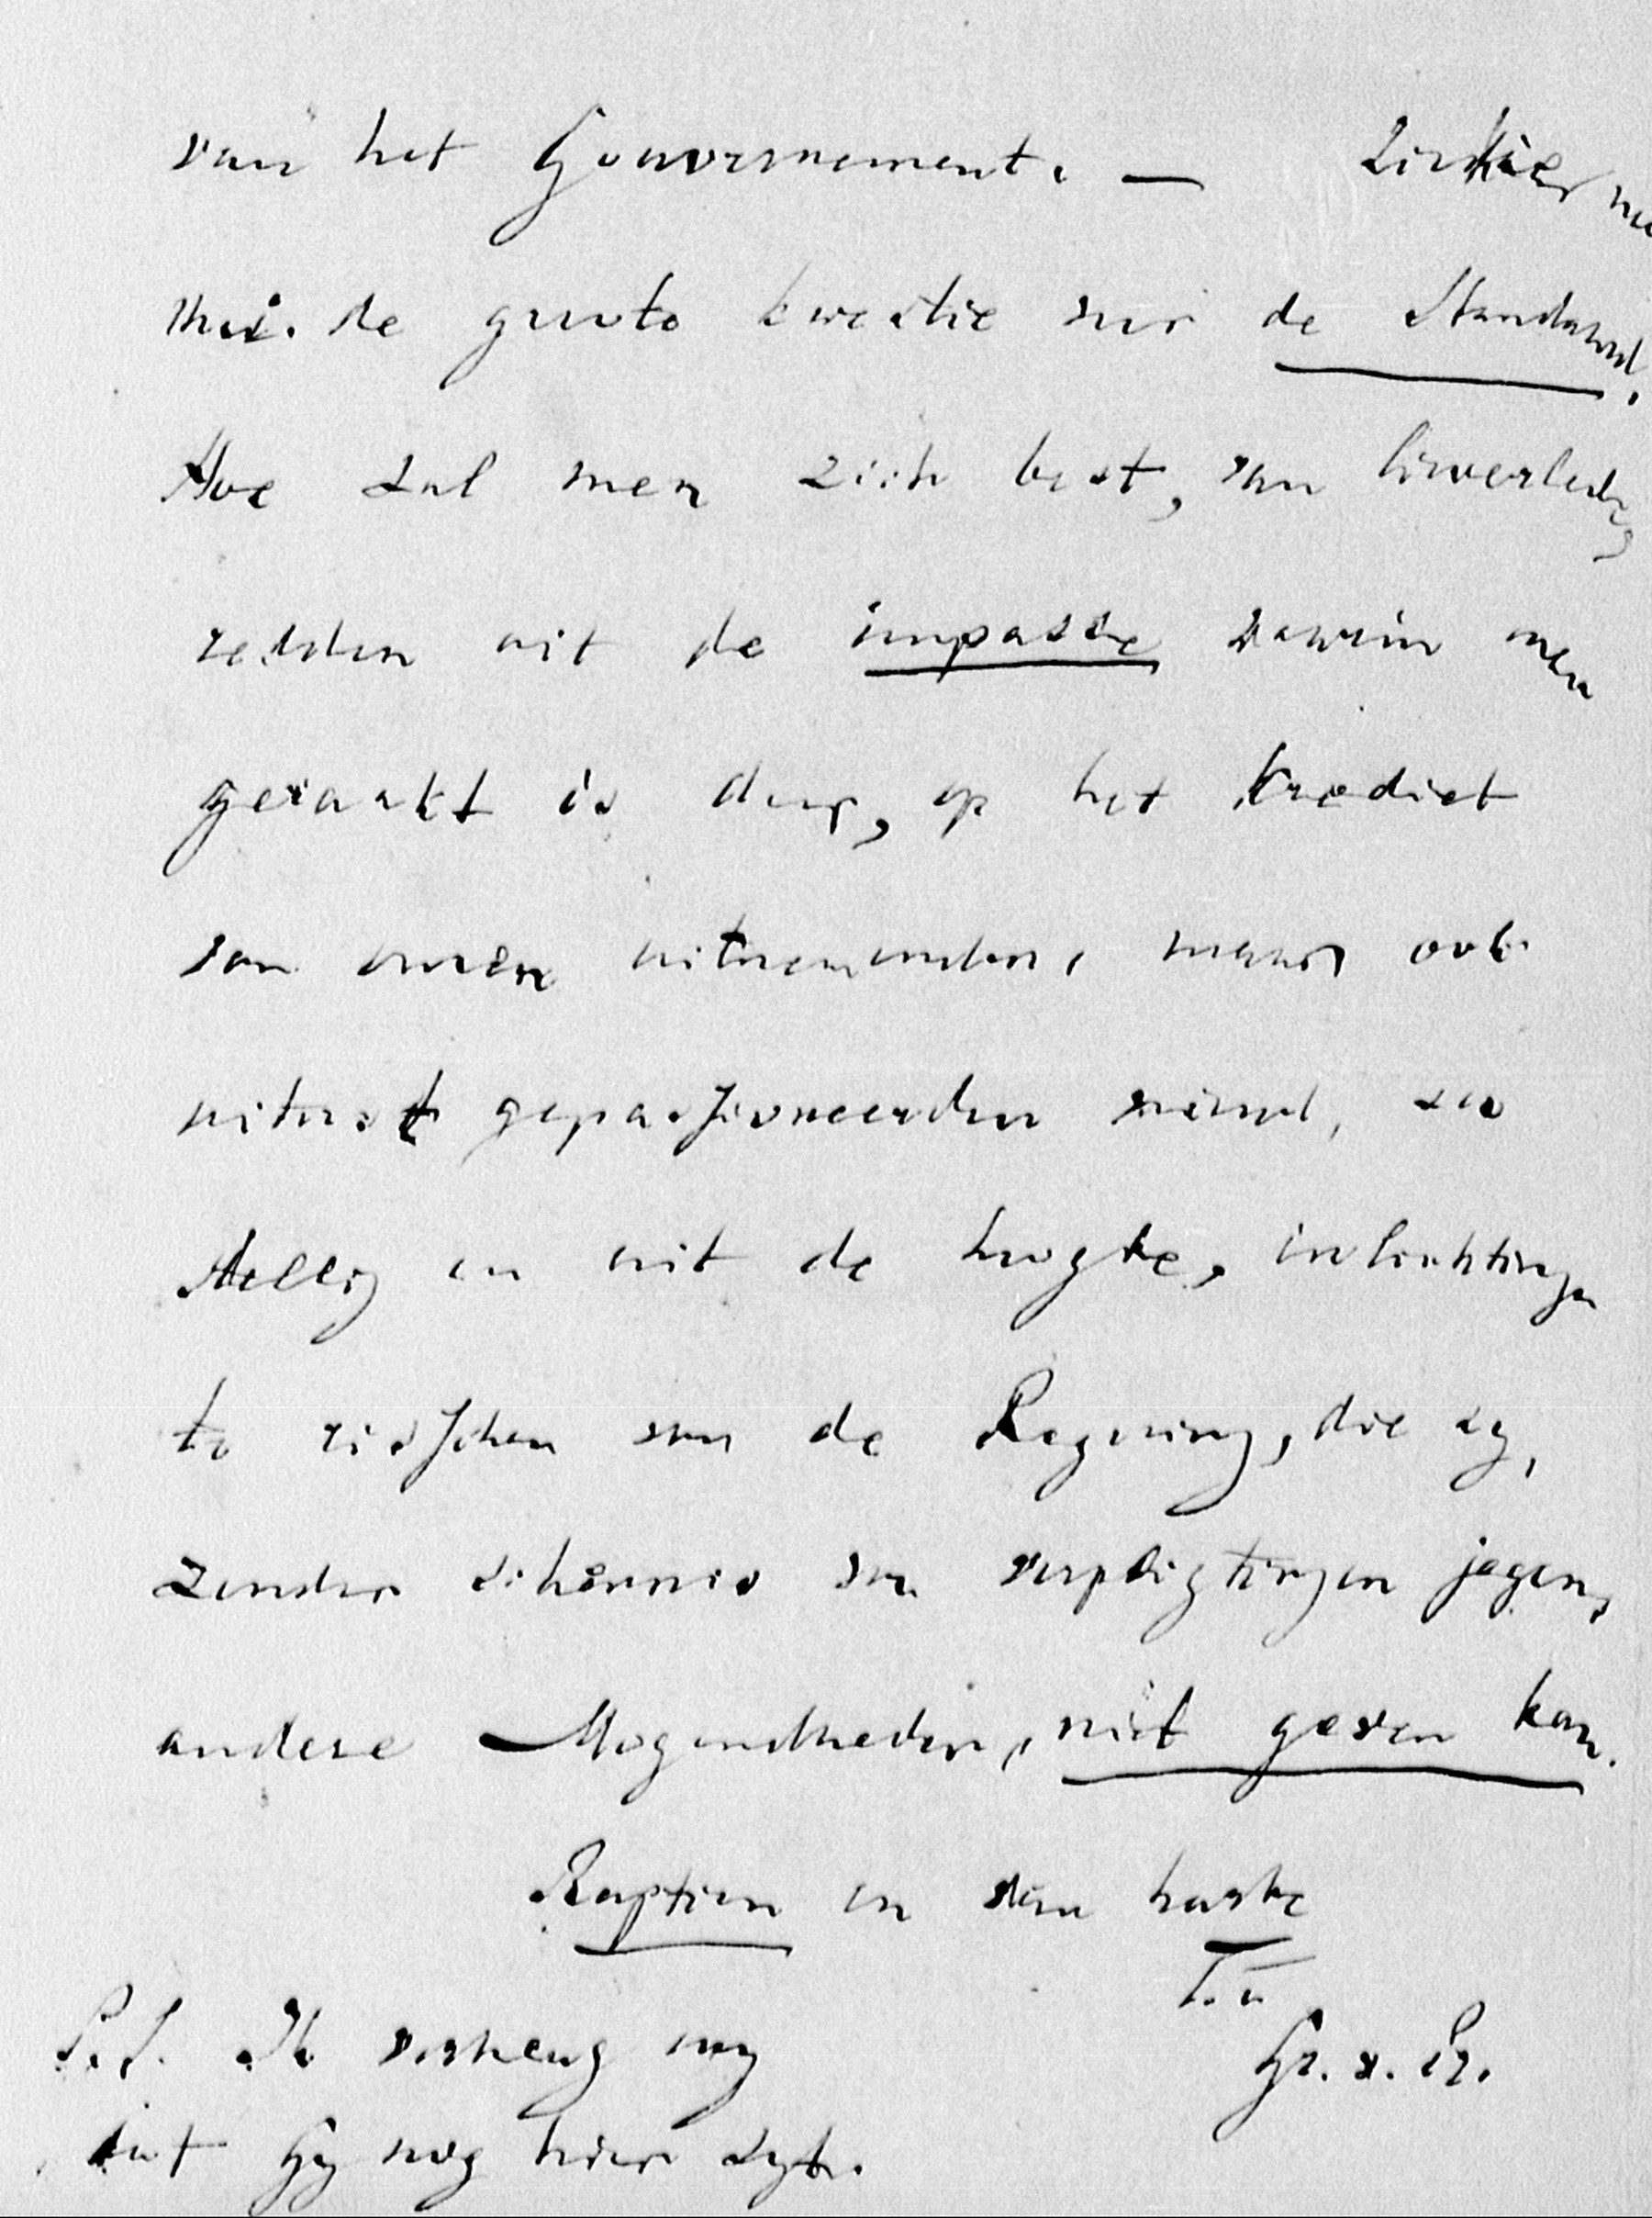 van het Gouvernement. — Ziedaar nu
mi. de groote kwestie voor de Standaard.
Hoe zal men zich best, van lieverlede,
redden uit de impasse waarin men
geraakt is door, op het krediet
van onzen uitnemenden, maar ook
uiterst gepassioneerden vriend, zoo
stellig en uit de hoogte, inlichtingen
te eischen van de Regering, die zy,
zonder schennis van verpligtingen jegens
andere Mogendheden, niet geven kan.
Raptim en den haste
T.a.
Gr. v. Pr.
P.S. Ik verheug my
dat Gy nog hier zyt.